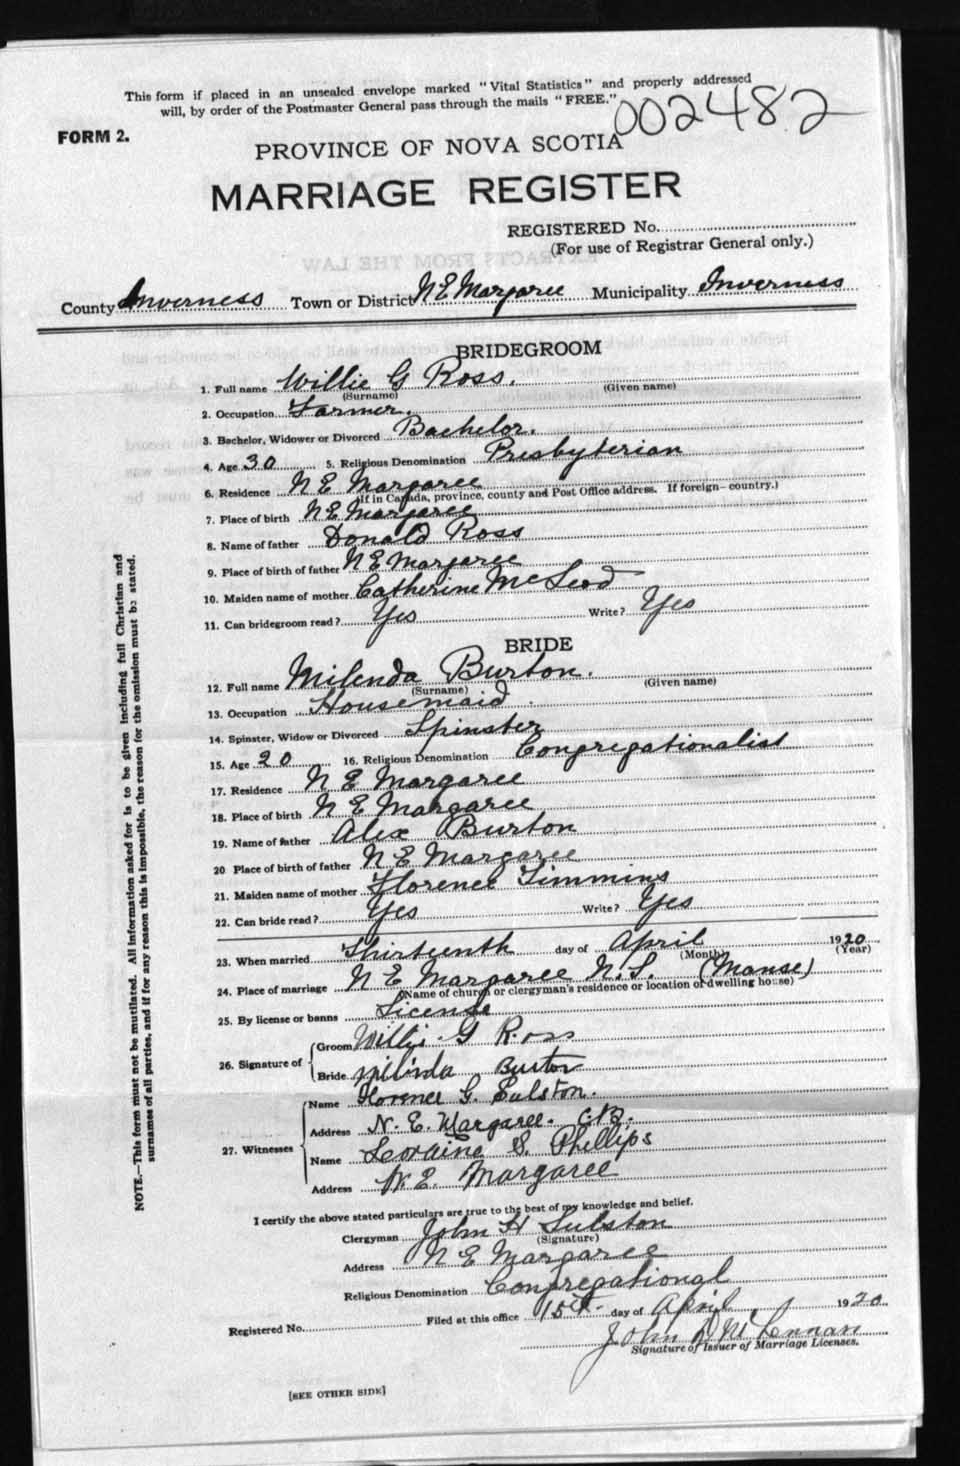 This form if placed in an unsealed envelope marked "Vital Statistics" and properly addressed
will, by order of the Postmaster General pass through the mails "FREE."
002482
FORM 2.
PROVINCE OF NOVA SCOTIA
MARRIAGE REGISTER
REGISTERED No.
(For use of Registrar General only.)
County Inverness Town or District N E Margaree Municipality Inverness
BRIDEGROOM
1. Full name Willie G Ross.
(Surname) (Given name)
2. Occupation Farmer.
3. Bachelor, Widower or Divorced Bachelor.
4. Age 30 5. Religious Denomination Presbyterian
6. Residence N E Margaree
(If in Canada, province, county and Post Office address. If foreign—country.)
7. Place of birth N E Margaree
8. Name of father Donald Ross
9. Place of birth of father N E Margaree
10. Maiden name of mother Catherine McLeod
11. Can bridegroom read? Yes Write? Yes
BRIDE
12. Full name Milenda Burton.
(Surname) (Given name)
13. Occupation Housemaid.
14. Spinster, Widow or Divorced Spinster
15. Age 20 16. Religious Denomination Congregationalist
17. Residence N E Margaree
18. Place of birth N E Margaree
19. Name of father Alex Burton
20 Place of birth of father N E Margaree
21. Maiden name of mother Florence Timmins
22. Can bride read? Yes Write? Yes
23. When married Thirteenth day of April 1920
(Month) (Year)
24. Place of marriage N E Margaree N.S. (Manse)
(Name of church or clergyman's residence or location of dwelling house)
25. By license or banns License
26. Signature of Groom Willie G Ross
Bride Milinda Burton
27. Witnesses Name Florence G. Sulston.
Address N. E. Margaree. C.B.
Name Loraine S. Phillips
Address N. E. Margaree
I certify the above stated particulars are true to the best of my knowledge and belief.
Clergyman John H Sulston
(Signature)
Address N E Margaree
Religious Denomination Congregational
Registered No. Filed at this office 15th day of April 1920
John McLennan
Signature of Issuer of Marriage Licenses.
[SEE OTHER SIDE]
NOTE.—This form must not be mutilated. All information asked for is to be given including full Christian and
surnames of all parties, and if for any reason this is impossible, the reason for the omission must be stated.